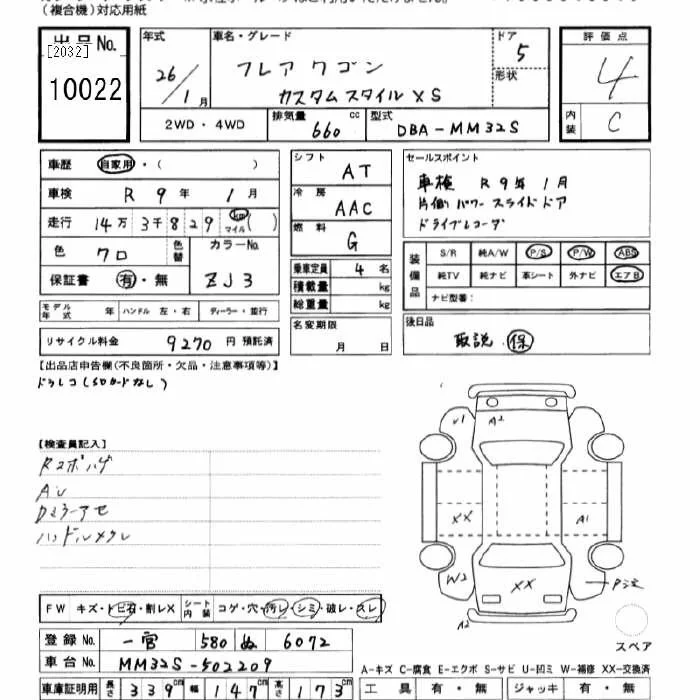 （複合機）対応用紙
出品No.
[2032]
10022
年式
26/1月
車名・グレード
フレアワゴン
カスタムスタイルXS
ドア
5
形状
2WD・4WD
排気量 660 cc
型式 DBA-MM32S
評価点
4
内装
C
車歴 自家用・（ ）
車検 R 9年 1月
走行 14万3千829 km マイル（ ）
色 クロ 色替 カラーNo. ZJ3
保証書 有・無
モデル年式 年 ハンドル 左・右 ディーラー・並行
リサイクル料金 9270円 預託済
シフト AT
冷房 AAC
燃料 G
乗車定員 4名
積載量 kg
総重量 kg
名変期限
月 日
セールスポイント
車検 R9年1月
片側パワースライドドア
ドライブレコーダ
装備品
S/R 純A/W P/S P/W ABS
純TV 純ナビ 革シート 外ナビ エアB
ナビ型番：
後日品
取説 保
【出品店申告欄(不良箇所・欠品・注意事項等)】
ドラレコ(SDカードなし)
【検査員記入】
ハンドルメクレ
U1
A2
XX
A1
W2
XX
A2
FW キズ・トビ石・割レX
シート内装 コゲ・穴・汚レ・シミ・破レ・スレ
登録No. 一宮 580 ぬ 6072
車台No. MM32S-502209
車庫証明用 長さ 339cm 幅 147cm 高さ 173cm
スペア
A-キズ C-腐食 E-エクボ S-サビ U-凹ミ W-補修 XX-交換済
工具 有・無 ジャッキ 有・無